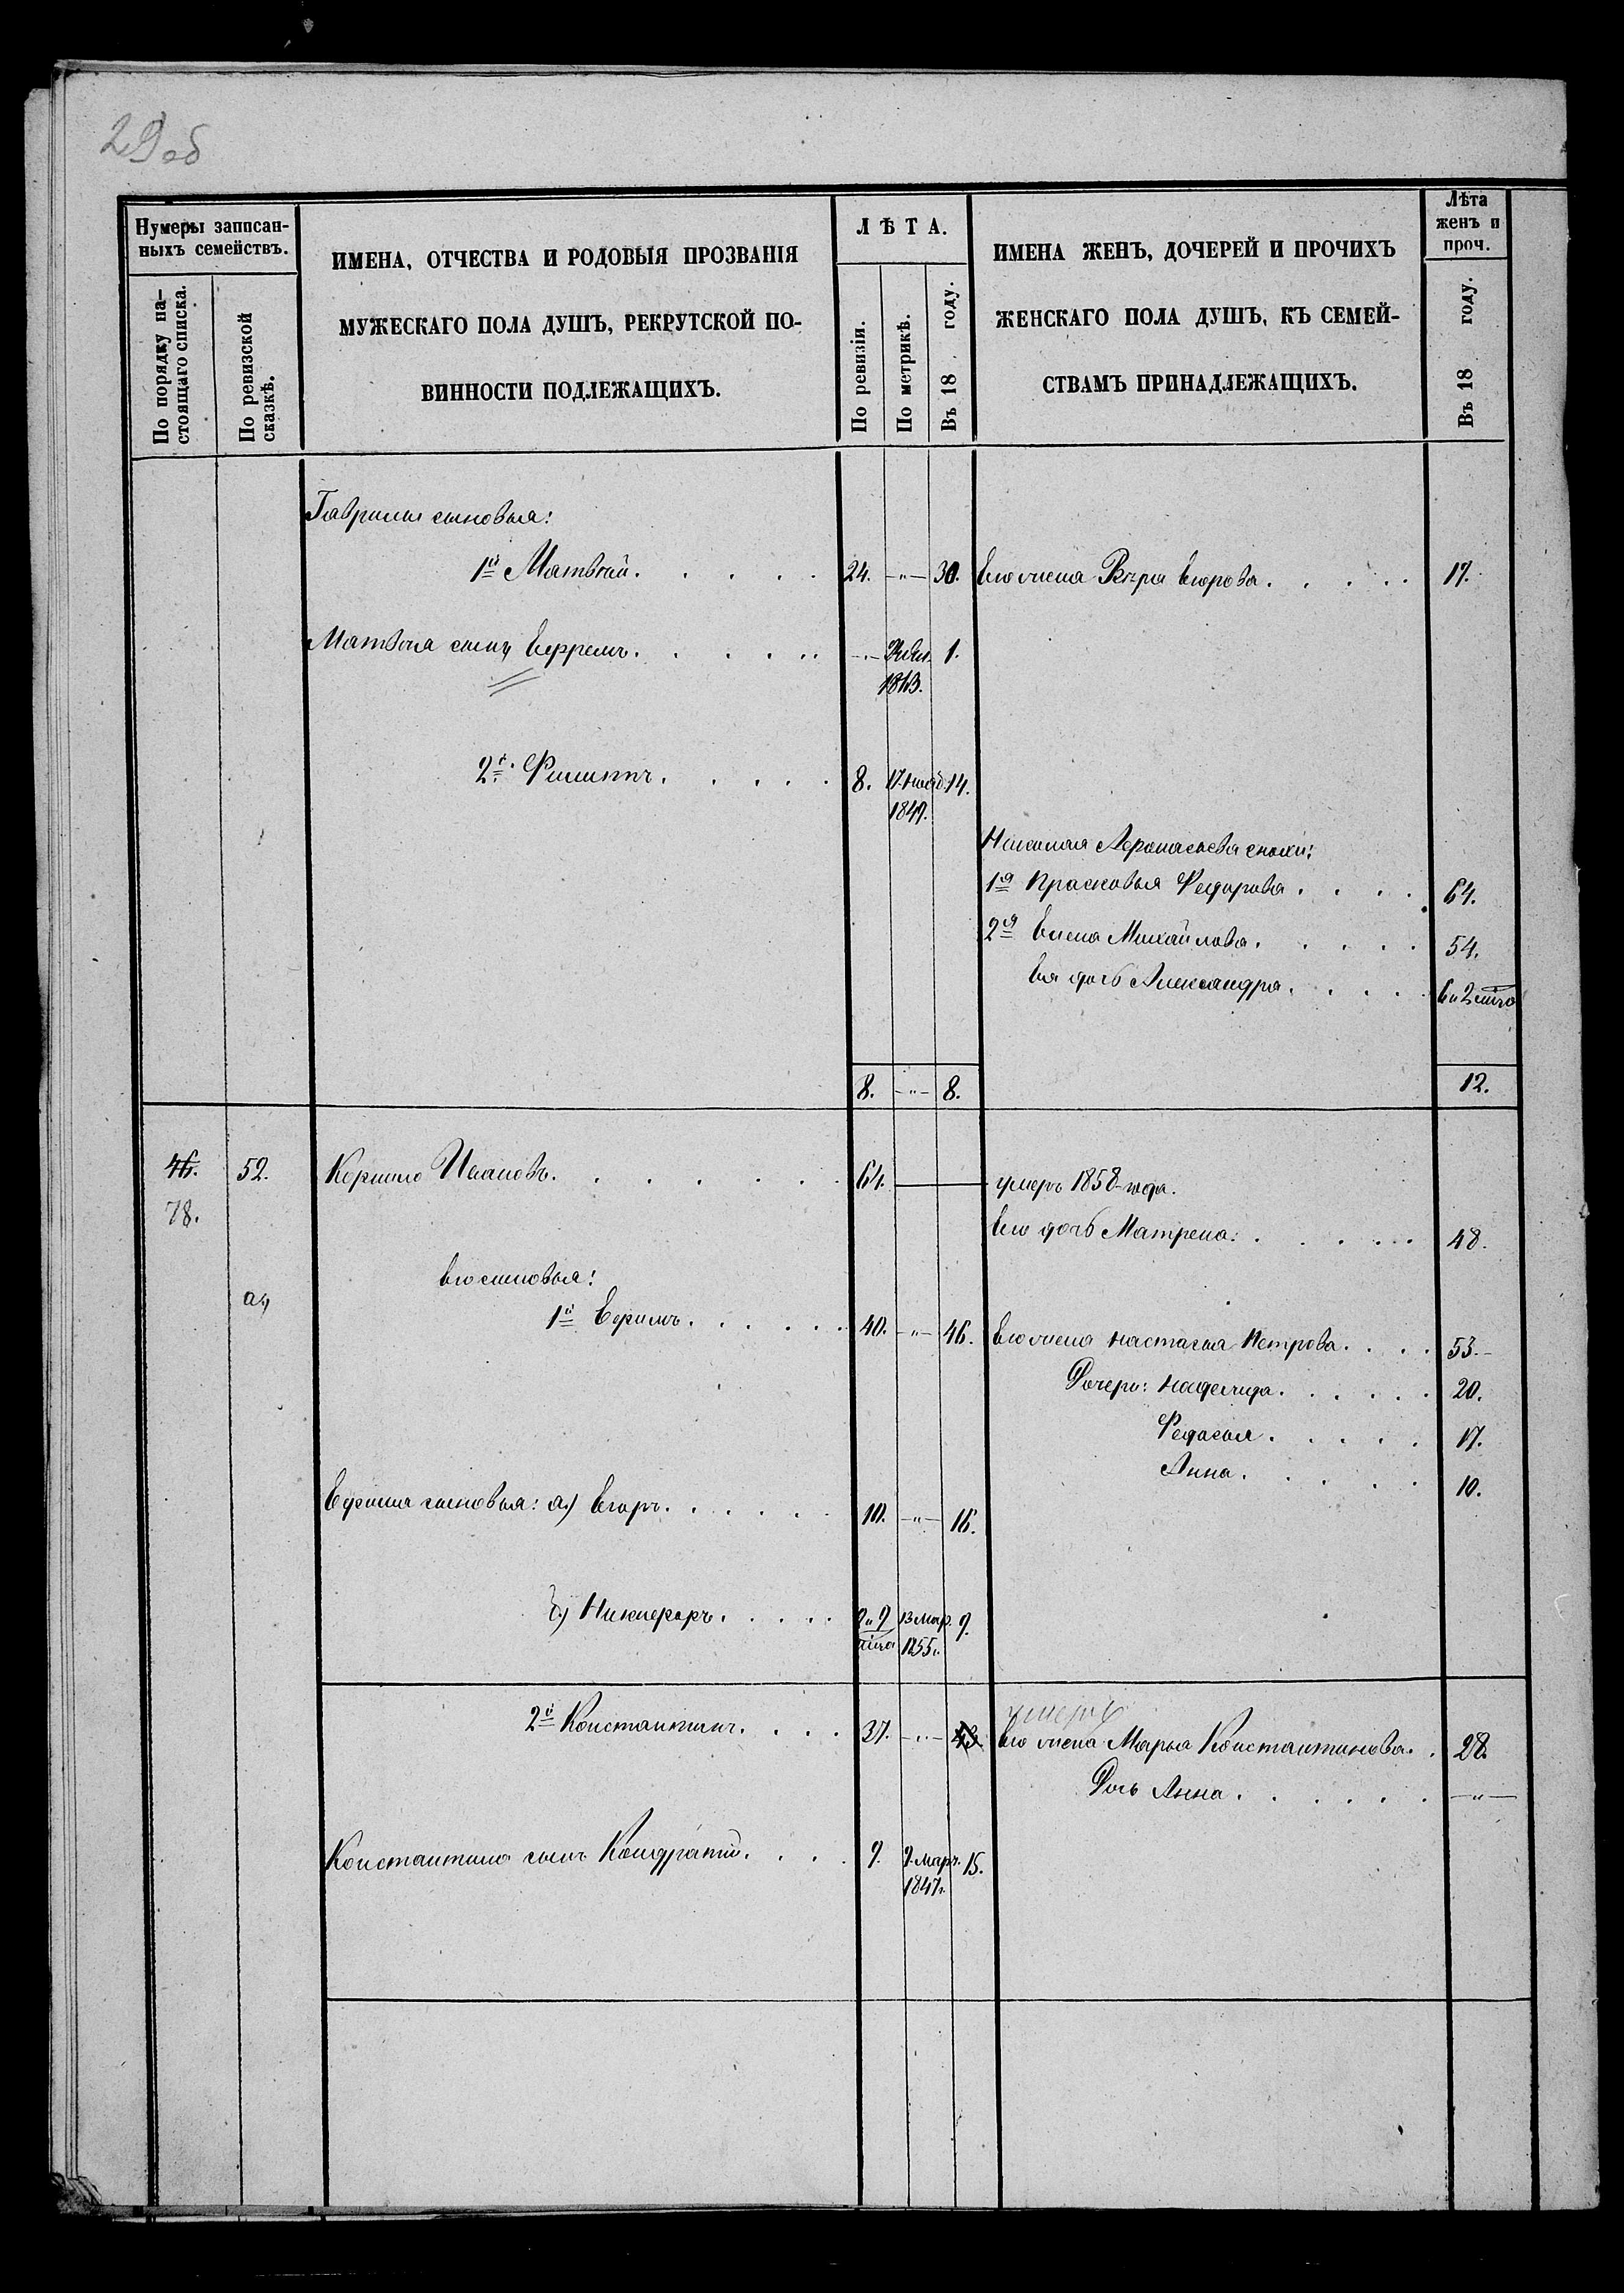 29 об
Нумеры записан-
ныхъ семействъ.
По порядку на-
стоящаго списка.
По ревизской
сказкѣ.
ИМЕНА, ОТЧЕСТВА И РОДОВЫЯ ПРОЗВАНІЯ
МУЖЕСКАГО ПОЛА ДУШЪ, РЕКРУТСКОЙ ПО-
ВИННОСТИ ПОДЛЕЖАЩИХЪ.
ЛѢТА.
По ревизіи.
По метрикѣ.
Въ 18 году.
ИМЕНА ЖЕНЪ, ДОЧЕРЕЙ И ПРОЧИХЪ
ЖЕНСКАГО ПОЛА ДУШЪ, КЪ СЕМЕЙ-
СТВАМЪ ПРИНАДЛЕЖАЩИХЪ.
Лѣта
женъ и
проч.
Въ 18 году.
Гаврилы сыновья:
1й Матвѣй. 24. -"- 30. Его жена Вѣра Егорова. 17.
Матвѣя сынъ Ефремъ. -"- 1.
2й Филиппъ. 8. 17. Нояб. 14.
1847.
Афонасьева снохи:
1я Прасковья Федорова. 64.
2я Елена Михайлова. 54.
Ея дочь Александра. 6 и 2
8. -"- 8. 12.
46. 52. Иванов. 64. умеръ 1858 года.
78.
Его дочь Матрена. 48.
Его сыновья:
а,
1й Ефимъ. 40. -"- 46. Его жена Настасья Петрова. 53.
Дочери: Надежда. 20.
Федосья. 17.
Анна. 10.
Ефима сыновья: а) Егоръ. 10. -"- 16.
б) Никифоръ. 2 и 9 13 Мар. 9.
1855.
умеръ
2й Константинъ. 37. -"- 43. Его жена Марья Константинова. 28.
Дочь Анна. -"-
Константина сынъ Кондратій. 9. 9. Март. 15.
1847.